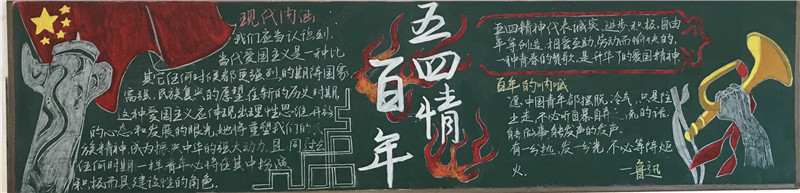 现代内涵
我们应当认识到,
当代爱国主义是一种比
其它任何时候都更强烈的期待国家
富强、民族复兴的愿望,在新的历史时期
这种爱国主义应体现出理性思维、开放
的心态和发展的眼光,她将重塑我们的
族精神,成为振兴中华的强大动力,且同过去
任何时期一样青年必将在其中扮演
积极而具建设性的角色.
五四情
百年
五四精神代表诚实、进步、积极、自由
平等、创造、相爱互助、劳动而愉快的,
一种青春的赞歌,是升华了的爱国精神
百年的呐喊
愿中国青年都摆脱冷气,只是向
上走,不必听自暴自弃 的话.
能做事 发声的发声.
有一分热,发一分光,不必等候炬
火.
—鲁迅